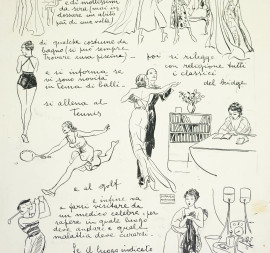 e di moltissimi
da sera, (non in
dossare un abito
più di una volta)
di qualche costume da
bagno (si può sempre
trovare una piscina) - poi si rilegge
con religione tutti
i classici
del bridge
e si informa se
ci sono novità
in tema di balli -
si allena al
tennis
e al golf
e infine va
a farsi visitare da
un medico celebre, per
sapere in quale luogo
deve andare e quale
malattia deve curarsi.
Se il luogo indicato